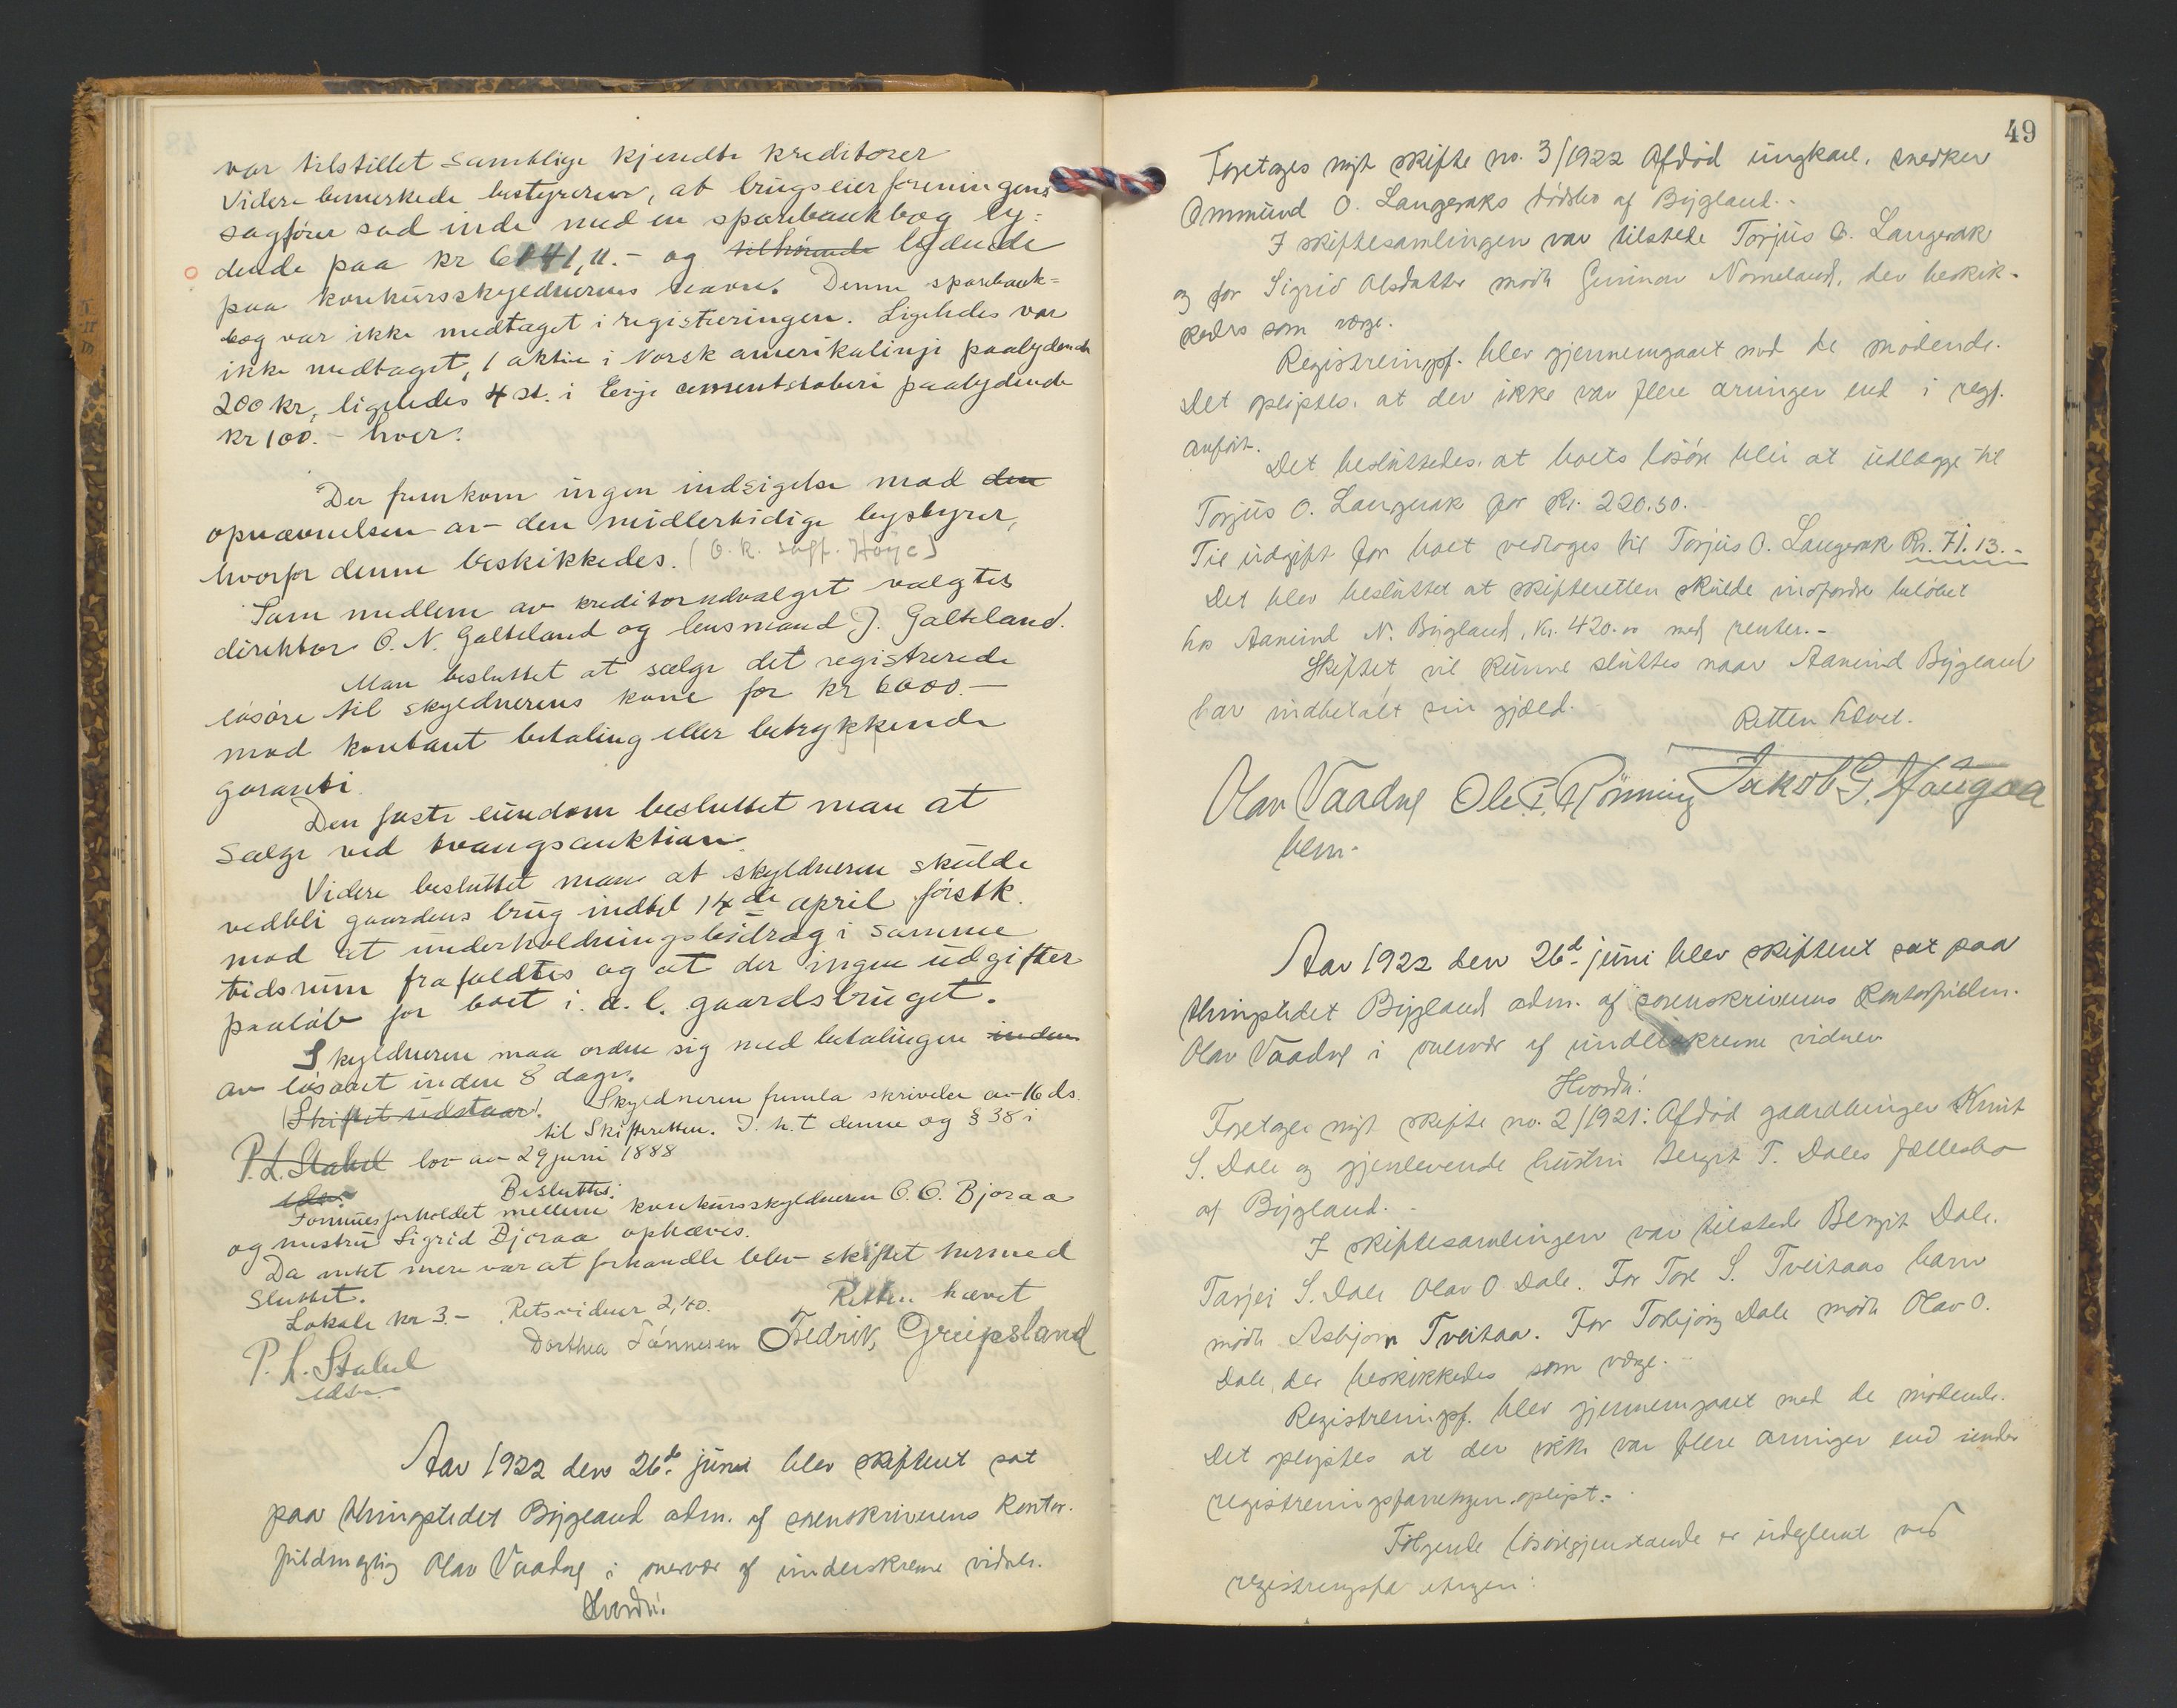 var tilstillet samtlige kjendte kreditorer
Videre bemerkede bestyreren, at brugseierforeningens
sagfører sad inde med en sparebankbog ly=
dende paa kr 6141,11.- og tilhørende lydende
paa konkursskyldnerens navn. Denne sparebank=
bog var ikke medtaget i registreringen. Ligeledes var
ikke medtaget, 1 aktie i Norsk amerikalinje paalydende
200 kr, ligeledes 4 st. i cementstøberi paalydende
kr 100.- hver.
Der fremkom ingen indsigelse mod den
opnævnelsen av den midlertidige bestyrer,
hvorfor denne beskikkedes. (O.r. sagf. Høye)
Som medlem av kreditorudvalget valgtes
direktør O. N. Galteland og lensmand J. Galteland.
Man besluttet at sælge det registrerede
løsøre til skyldnerens kone for kr 6000.-
mod kontant betaling eller betryggende
garanti.
Den faste eiendom besluttet man at
sælge ved tvangsauktion.
Videre besluttet man at skyldneren skulde
vedbli gaardens brug indtil 14de april førstk.
mod at underholdningsbidrag i samme
tidsrum frafaldtes og at der ingen udgifter
paaløb for boet i. a. l. gaardsbruget.
Skyldneren maa ordne sig med betalingen inden
av løsøret inden 8 dager.
Skiftet udstaar. Skyldneren fremla skrivelse av 16 ds.
til Skifteretten. I. h. t denne og § 38 i
P. L. Stabel lov av 29 juni 1888
eds.
Besluttes:
Formuesforholdet mellem konkursskyldneren O. O. Bjoraa
og hustru Sigrid Bjoraa ophæves.
Da intet mere var at forhandle blev skiftet hermed
sluttet.
Lokale kr 3.- Retsvidner 2,40. Retten hævet
P. L. Stabel Dorthea Tønnesen Fredrik Greipsland
eds.
Aar 1922 den 26de juni blev skifteret sat
paa thingstedet Bygland adm. af sorenskriverens kontor-
fuldmegtig Olav Vaadne i overvær af underskrevne vidner.
Hvorda:
49
Foretages nyt skifte no. 3/1922 Afdød ungkarl, snedker
Ommund O. Langeraks dødsbo af Bygland.-
I skiftesamlingen var tilstede Torjus O. Langerak
og for Sigrid Olsdatter mødte Gunnar Nomeland, der beskik-
kedes som værge.
Registreringsf. blev gjennemgaaet med de mødende.
Det oplystes, at der ikke var flere arvinger end i regf.
anført.
Det besluttedes, at boets løsøre blir at udlægge til
Torjus O. Langerak for Kr. 220.50.
Til udgift for boet vedtoges til Torjus O. Langerak Kr. 71.13.-
Det blev besluttet at skifteretten skulde indfordre beløbet
hos Aanund N. Bygland, Kr. 420.00 med renter.-
Skiftet vil kunne sluttes naar Aanund Bygland
har indbetalt sin gjæld.
Retten hævet.
Olav Vaadne Ole S. Rønning Jakob G. Haugaa
bem.
Aar 1922 den 26de juni blev skifteret sat paa
thingstedet Bygland adm. af sorenskriverens kontorfuldm.
Olav Vaadne i overvær af underskrevne vidner
Hvorda:
Foretages nyt skifte no. 2/1921: Afdød gaardbruger Knut
S. Dale og gjenlevende hustru Bergit T. Dales fællesbo
af Bygland.-
I skiftesamlingen var tilstede Bergit Dale.
Tarjei S. Dale Olav O. Dale. For Tore S. Tveitaas barn
mødte Asbjørn Tveitaa. For Torbjørg Dale mødte Olav O.
Dale, der beskikkedes som værge.-
Registreringsf. blev gjennemgaaet med de mødende.
Det oplystes at der ikke var flere arvinger end under
registreringsforretngen oplyst.-
Følgende løsøregjenstande er udeglemt ved
registrengsfo etngen: